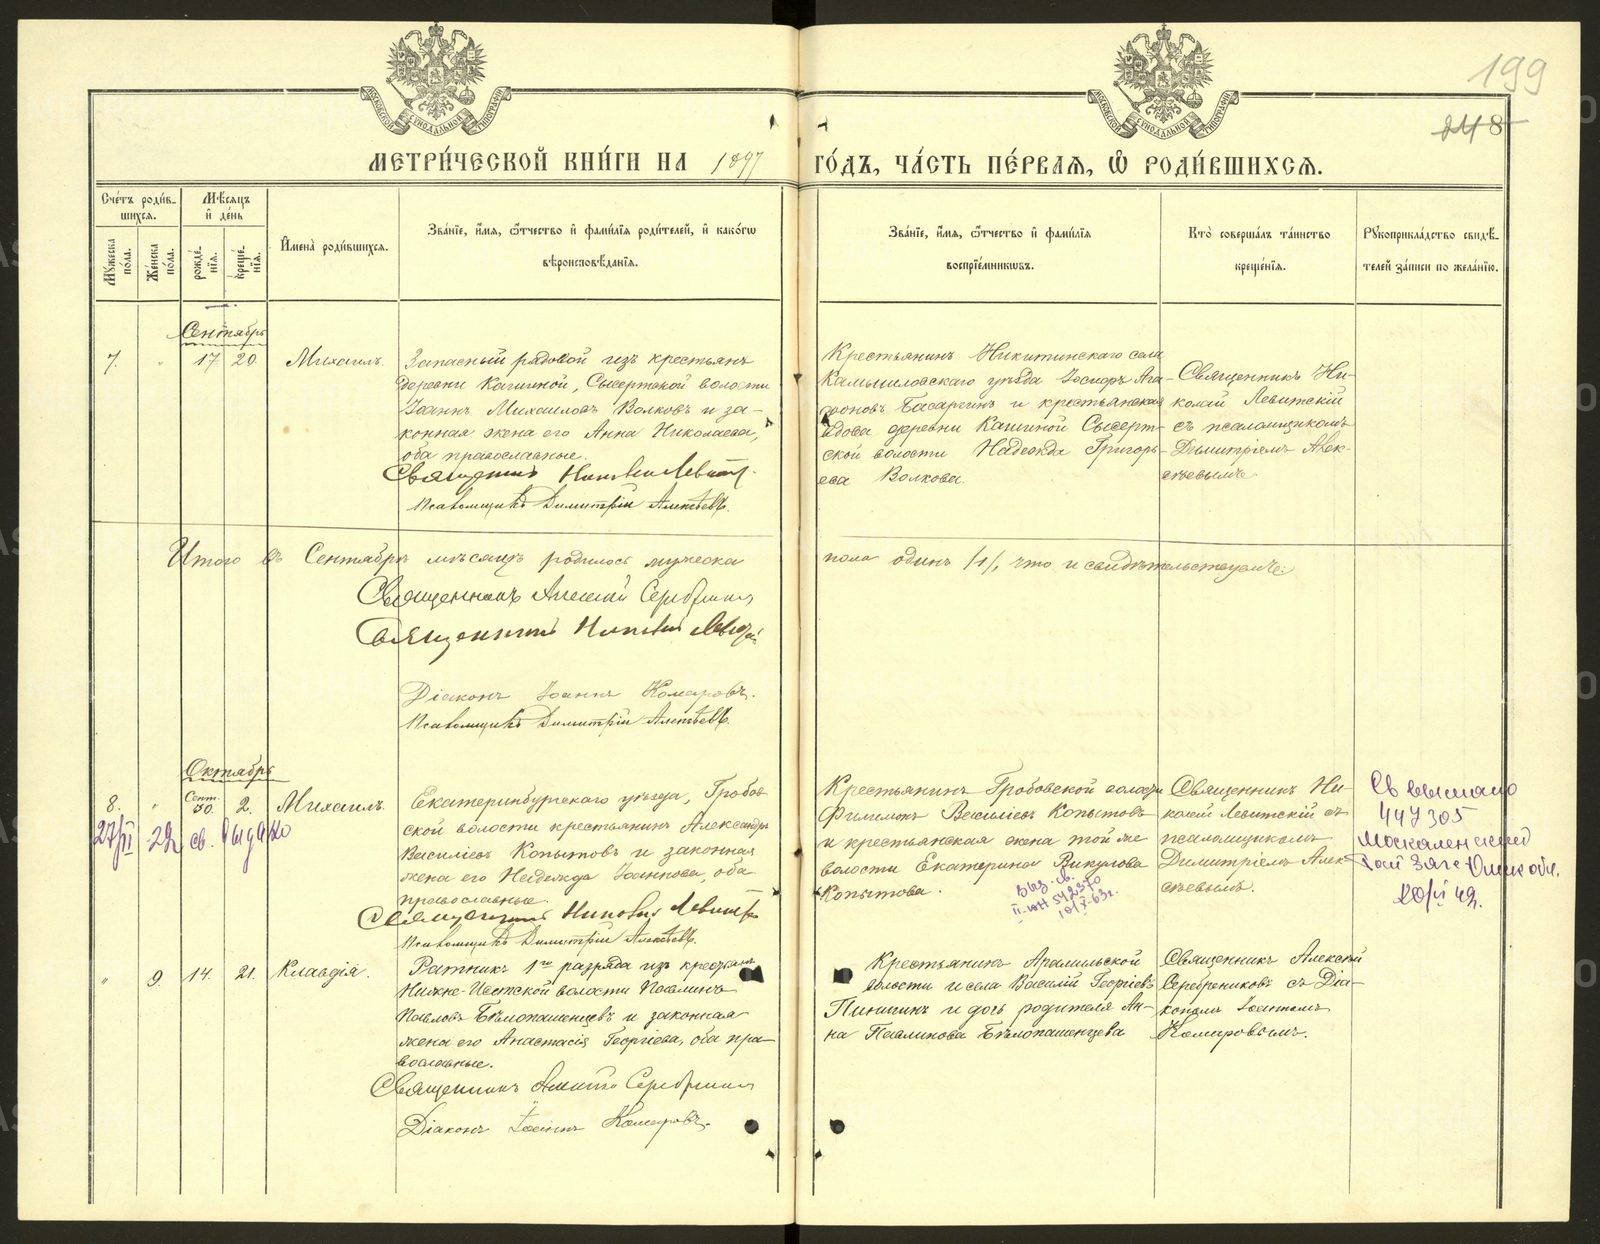 199
248
МЕТРИ́ЧЕСКОЙ КНИ́ГИ НА 1897 ГО́ДЪ, ЧА́СТЬ ПЕ́РВАѦ, Ѡ РОДИ́ВШИХСѦ.
Сче́тъ роди́в-
шихсѧ.
Мꙋ́жеска по́ла.
Же́нска по́ла.
Мѣ́сѧцъ
и҆ де́нь
рожде́-
нїѧ.
креще́-
нїѧ.
И҆мена̀ роди́вшихсѧ.
Зва́нїе, и҆́мѧ, ѻ҆́тчество и҆ фами́лїѧ роди́телей, и҆ како́гѡ
вѣроисповѣ́данїѧ.
Зва́нїе, и҆́мѧ, ѻ҆́тчество и҆ фами́лїѧ
воспрїе́мникѡвъ.
Кто̀ соверша́лъ та́инство
креще́нїѧ.
Рꙋкоприкла́дство свидѣ́-
телей за́писи по жела́нїю.
Сентябрь
7. " 17 20 Михаилъ.
Запасный рядовой изъ крестьянъ
деревни Кашиной, Сысертской волости
Іоаннъ Михаиловъ Волковъ и за-
конная жена его Анна Николаева,
оба православные.
Священникъ Николай Левитскій
Псаломщикъ Димитрій Алексѣевъ.
Крестьянинъ Никитинскаго села
Камышловскаго уѣзда Іосифъ Ага-
фоновъ Басаргинъ и крестьянская
вдова деревни Кашиной Сысерт-
ской волости Надежда Григорь-
ева Волкова.
Священникъ Ни-
колай Левитскій
съ псаломщикомъ
Димитріемъ Алек-
сѣевымъ
Итого въ Сентябрѣ мѣсяцѣ родилось мужеска
пола одинъ /1/, что и свидѣтельствуемъ:
Священникъ Алексій Серебрениковъ
Священникъ Николай Левитскій
Діаконъ Іоаннъ Комаровъ.
Псаломщикъ Димитрій Алексѣевъ.
Октябрь
8. " Сент. 30. 2. Михаилъ
27/II 29 св. выдано
Екатеринбургскаго уѣзда, Гробов-
ской волости крестьянинъ Александръ
Василіевъ Копытовъ и законная
жена его Надежда Іоаннова, оба
православные.
Священникъ Николай Левитскій
Псаломщикъ Димитрій Алексѣевъ.
Крестьянинъ Гробовской волости
Филимонъ Василіевъ Копытовъ
и крестьянская жена той же
волости Екатерина Викулова
Копытова.
Выд. св.
II-ЮН 542370
10/X-63г.
Священникъ Ни-
колай Левитскій съ
псаломщикомъ
Димитріемъ Алек-
сѣевымъ.
Св выслано
447305
Москаленский
Рай Загс Омск обл.
20/VI 49.
" 9. 14. 21. Клавдія.
Ратникъ 1го разряда изъ крестьянъ
Нижне-Исетской волости Павлинъ
Павловъ Бѣлопашенцевъ и законная
жена его Анастасія Георгіева, оба пра-
вославные.
Священникъ Алексій Серебрениковъ
Діаконъ Іоаннъ Комаровъ.
Крестьянинъ Арамильской
волости и села Василій Георгіевъ
Пинигинъ и дочь родителя Ан-
на Павлинова Бѣлопашенцева
Священникъ Алексѣй
Серебрениковъ съ Діа-
кономъ Іоанномъ
Комаровымъ.